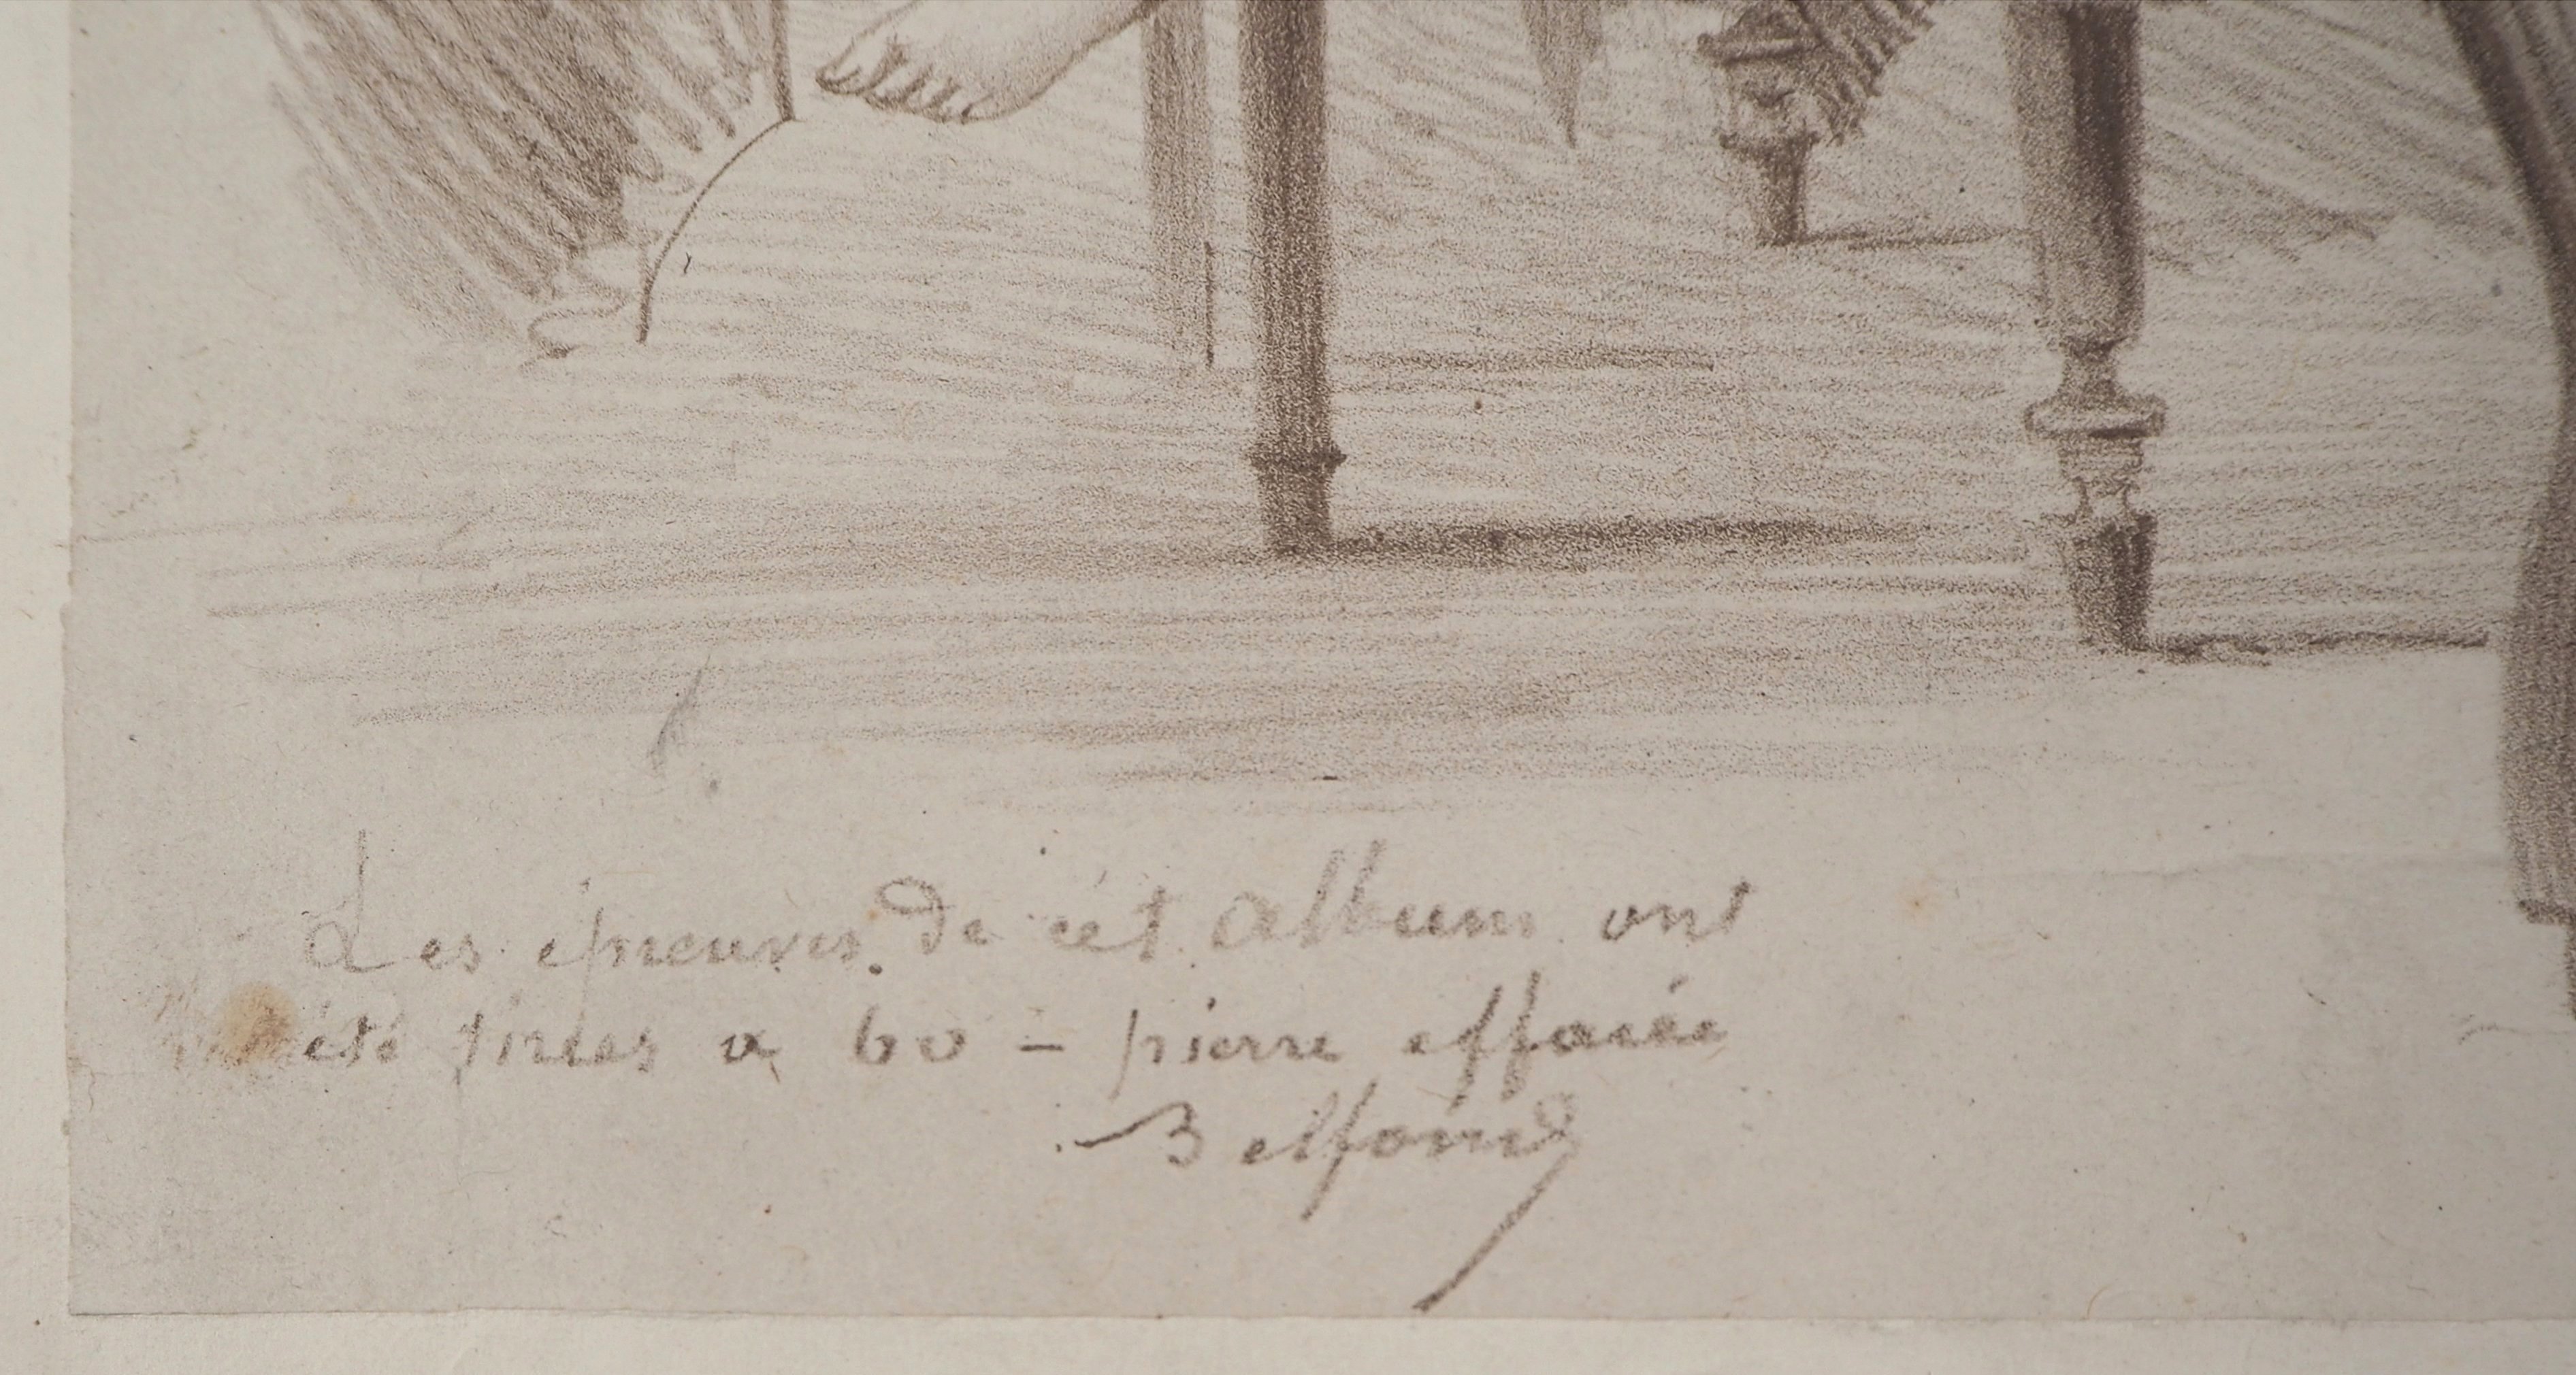 Les épreuves de cét album ont
été tirées a 60 = pierre effacée
Belfond